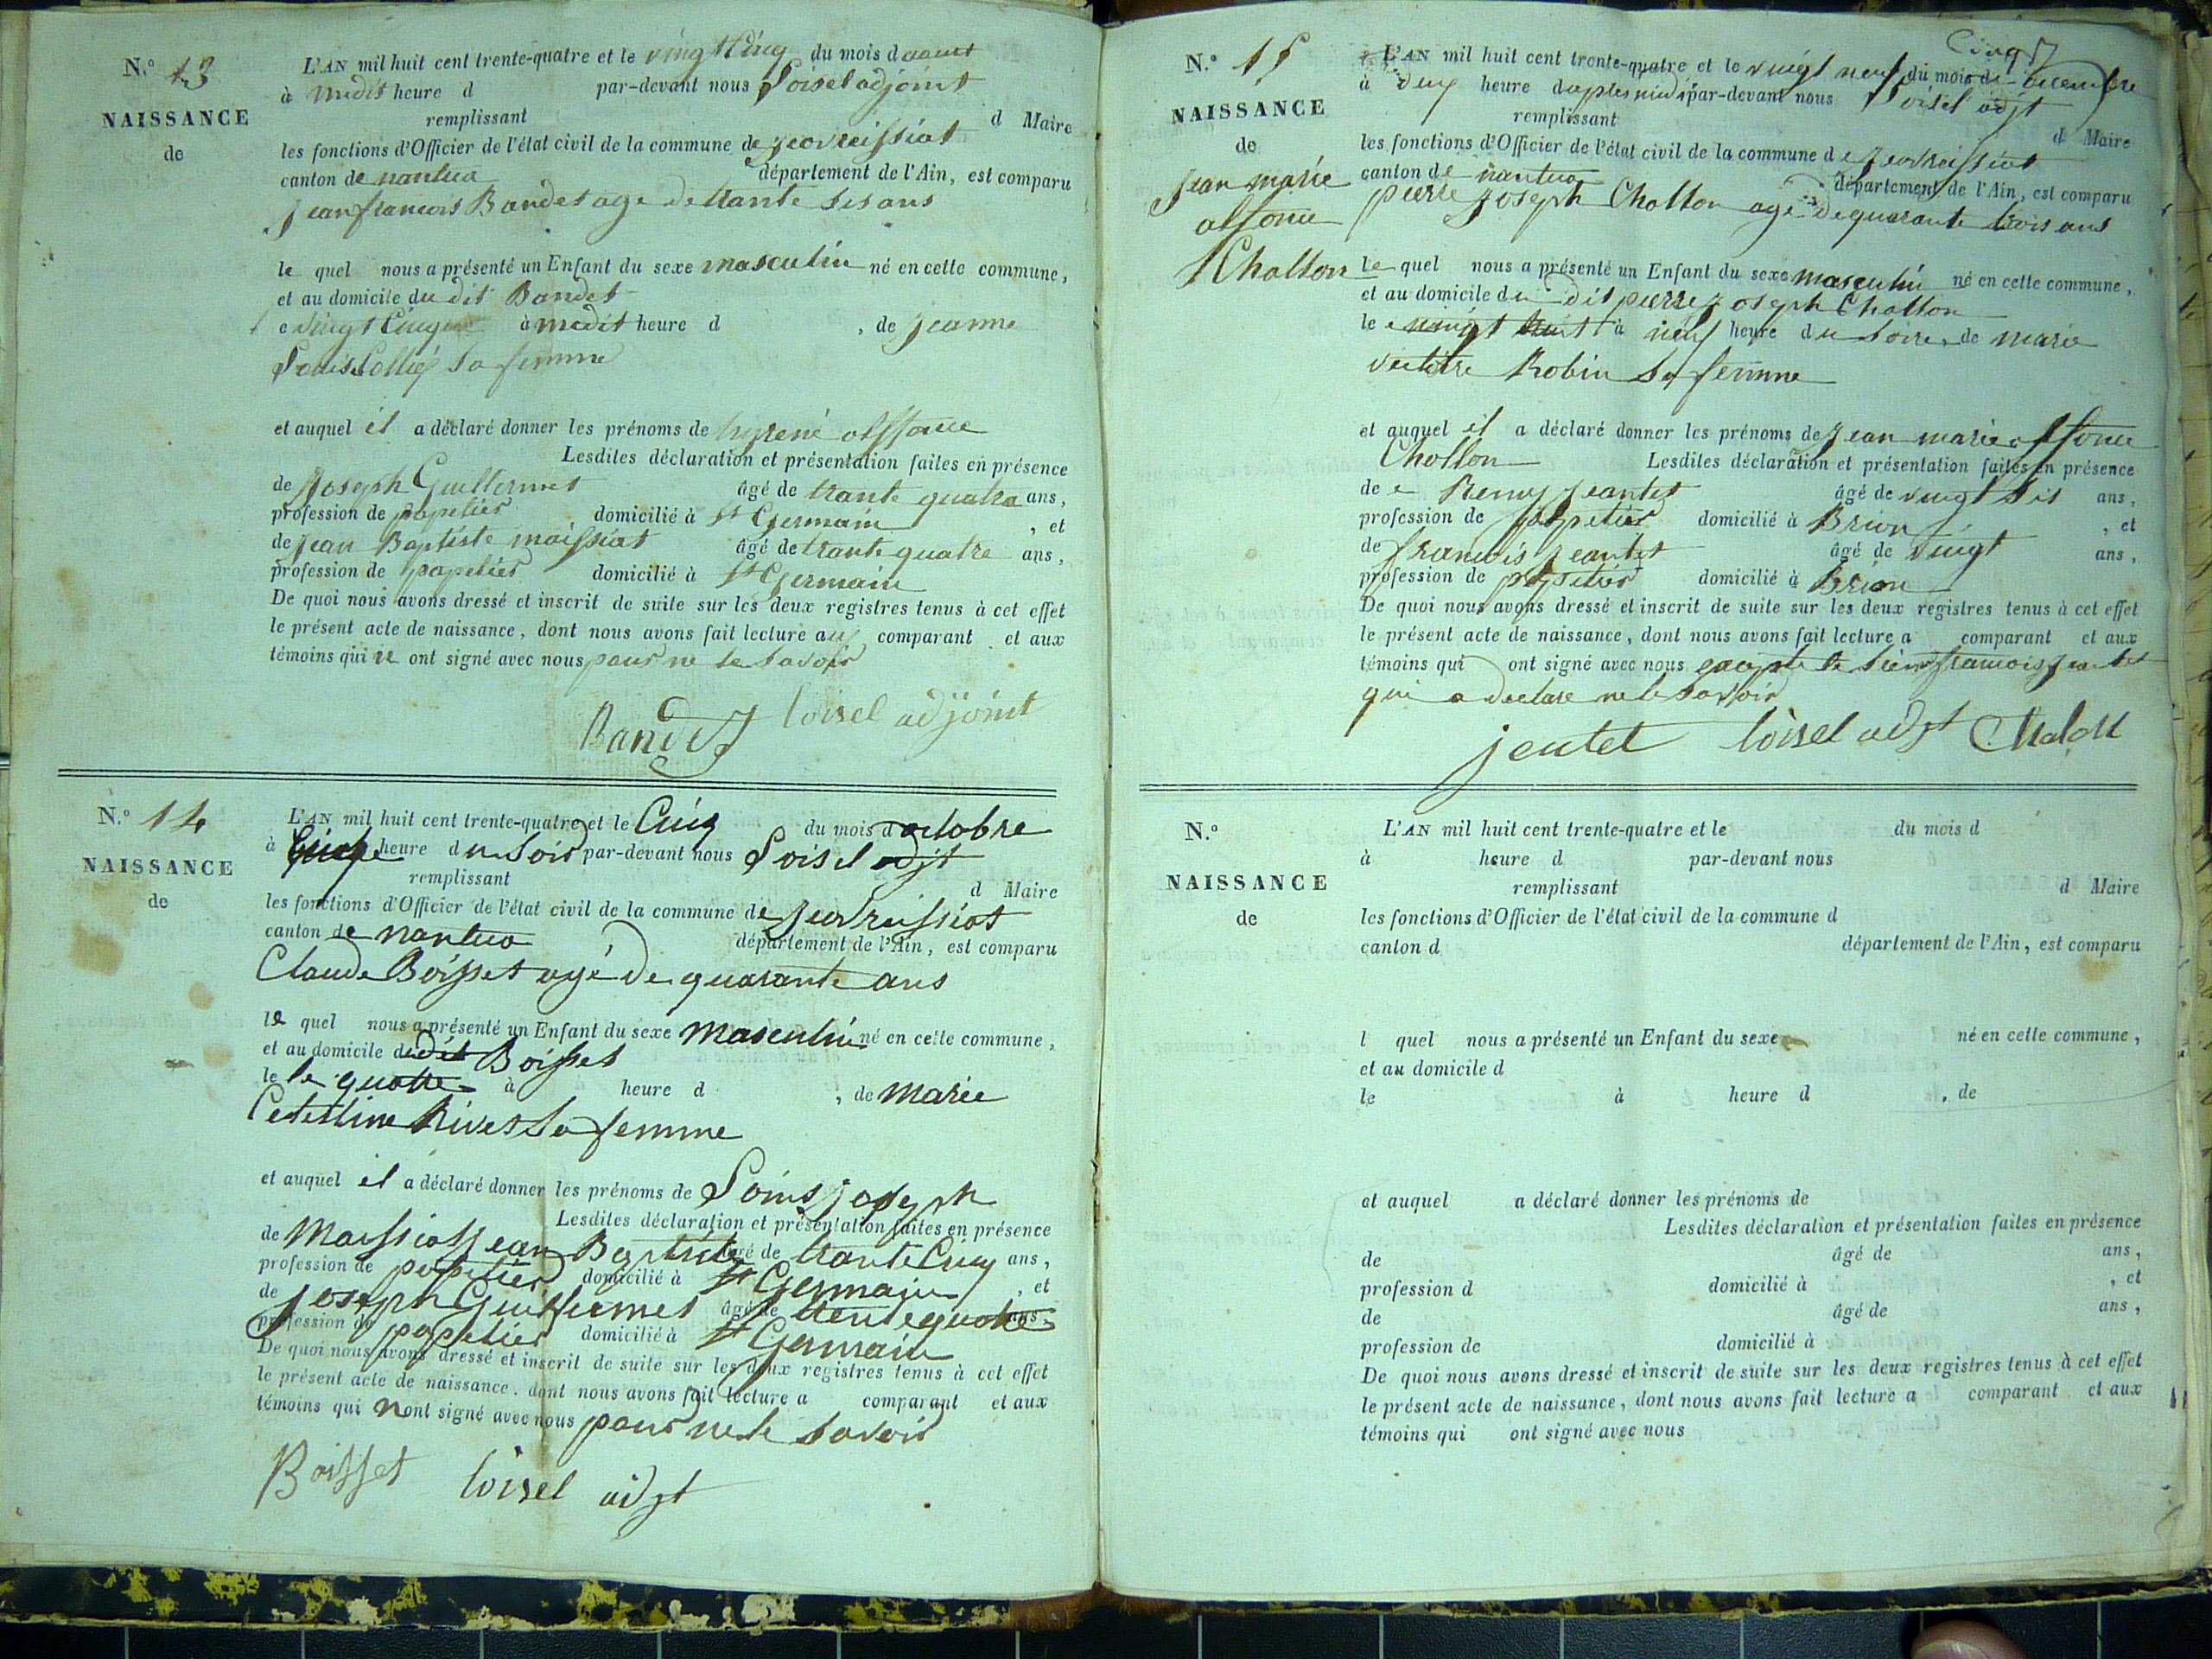 N.o 13
NAISSANCE
de
L'AN mil huit cent trente-quatre et le vingt Cinq du mois d aout
à midit heure d par-devant nous Loisel adjoint
remplissant d Maire
les fonctions d'Officier de l'état civil de la commune de geovreissiat
canton de nantua département de l'Ain, est comparu
jean francois Bandet age de trante sis ans
le quel nous a présenté un Enfant du sexe masculin né en cette commune,
et au domicile du dit Bandet
e vingt Cinque à midit heure d , de jeanne
sa femme
et auquel il a déclaré donner les prénoms de
Lesdites déclaration et présentation faites en présence
de joseph Guillermet âgé de trante quatre ans,
profession de papetier domicilié à St Germain , et
de jean Baptiste moissiat âgé de trante quatre ans,
profession de papetier domicilié à St Germain
De quoi nous avons dressé et inscrit de suite sur les deux registres tenus à cet effet
le présent acte de naissance, dont nous avons fait lecture au comparant et aux
témoins qui n ont signé avec nous pour ne le savoir
Bandet loisel adjoint
N.o 14
NAISSANCE
de
L'AN mil huit cent trente-quatre et le Cinq du mois d octobre
à heure du Soir par-devant nous Loisel adjt
remplissant d Maire
les fonctions d'Officier de l'état civil de la commune de jeovreissiat
canton de nantua département de l'Ain, est comparu
Claude Boisset agé de quarante ans
le quel nous a présenté un Enfant du sexe masculin né en cette commune,
et au domicile du dit Boisset
le le quatre à heure d , de marie
Celestine Rivet sa femme
et auquel il a déclaré donner les prénoms de Louis joseph
Lesdites déclaration et présentation faites en présence
de Moissiat jean Baptiste âgé de trante Cinq ans,
profession de papetier domicilié à St Germain , et
de joseph Guillermet âgé de trente quatre ans,
profession de papetier domicilié à St Germain
De quoi nous avons dressé et inscrit de suite sur les deux registres tenus à cet effet
le présent acte de naissance, dont nous avons fait lecture a comparant et aux
témoins qui n ont signé avec nous pour ne le savoir
Boisset loisel adjt
Cinq 5
N.o 15
NAISSANCE
de
jean marie
alfonce
Chollon
L'AN mil huit cent trente-quatre et le vingt neuf du mois de decembre
à deux heure d'aples midi par-devant nous Loisel adjt
remplissant d Maire
les fonctions d'Officier de l'état civil de la commune de jeovreissiat
canton de nantua département de l'Ain, est comparu
pierre joseph Chollon agé de quarante trois ans
le quel nous a présenté un Enfant du sexe masculin né en cette commune,
et au domicile du dit pierre joseph Chollon
le vingt huit à neuf heure du soire, de marie
Robin sa femme
et auquel il a déclaré donner les prénoms de jean marie alfonce
Chollon Lesdites déclaration et présentation faites en présence
de Remy jeantet âgé de vingt sis ans,
profession de papetier domicilié à Brion , et
de francois jeantet âgé de vingt ans,
profession de papetier domicilié à Brion
De quoi nous avons dressé et inscrit de suite sur les deux registres tenus à cet effet
le présent acte de naissance, dont nous avons fait lecture a comparant et aux
témoins qui ont signé avec nous excepte le francois jeantet
qui a declare ne le savoir
jentet loisel adjt Chalon
N.o
NAISSANCE
de
L'AN mil huit cent trente-quatre et le du mois d
à heure d par-devant nous
remplissant d Maire
les fonctions d'Officier de l'état civil de la commune d
canton d département de l'Ain, est comparu
l quel nous a présenté un Enfant du sexe né en cette commune,
et au domicile d
le à heure d , de
et auquel a déclaré donner les prénoms de
Lesdites déclaration et présentation faites en présence
de âgé de ans,
profession d domicilié à , et
de âgé de ans,
profession de domicilié à
De quoi nous avons dressé et inscrit de suite sur les deux registres tenus à cet effet
le présent acte de naissance, dont nous avons fait lecture a comparant et aux
témoins qui ont signé avec nous